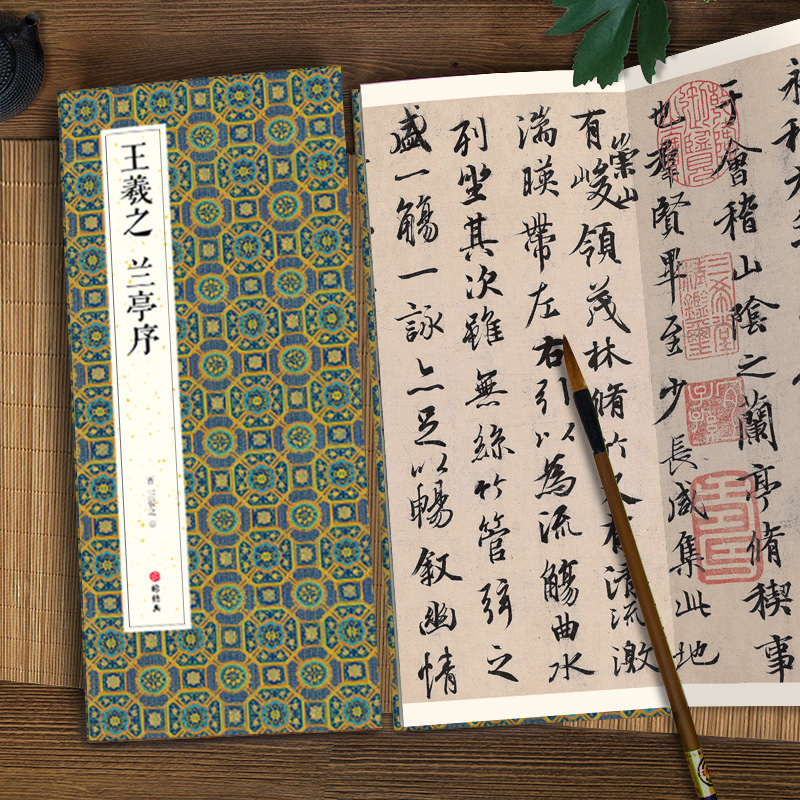 王羲之 兰亭序
晋 王羲之 书
永和九
于會稽山陰之蘭亭脩稧事
也羣賢畢至少長咸集此地
有崇山峻領茂林脩竹又有清流激
湍暎帶左右引以為流觴曲水
列坐其次雖無絲竹管弦之
盛一觴一詠亦足以暢叙幽情
三希堂精鑑璽
宜子孫